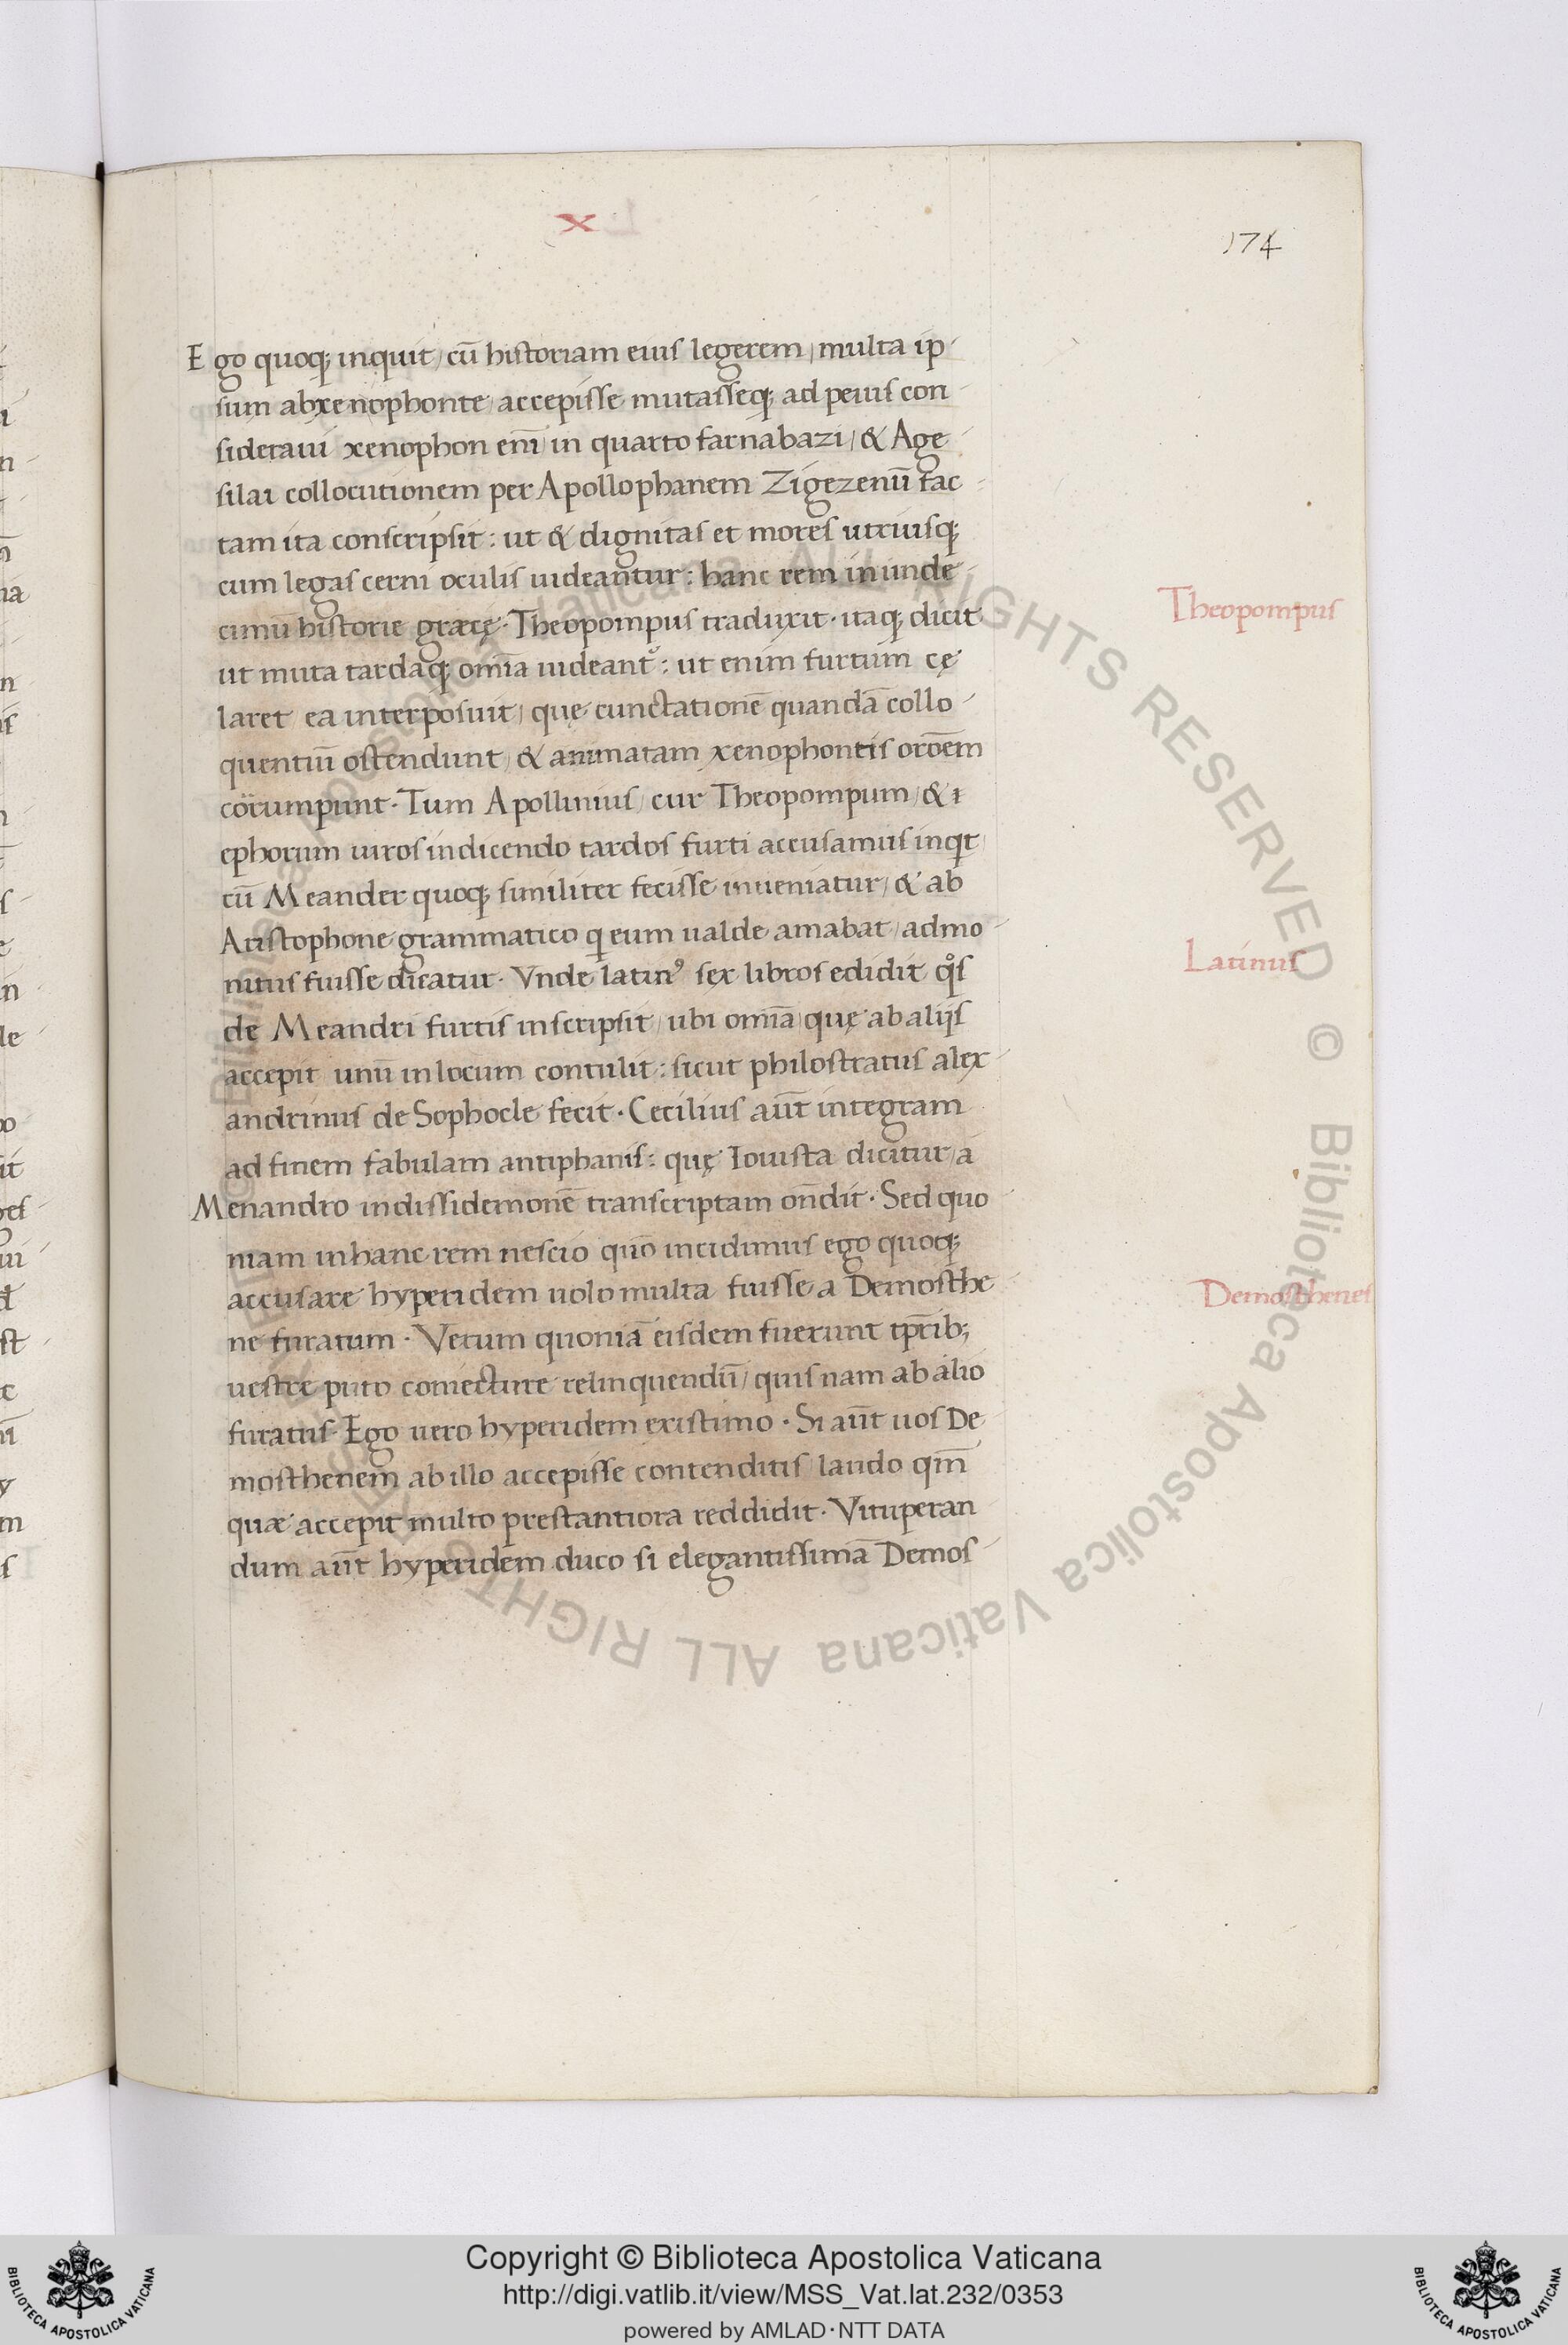 x
174
Ego quoq; inquit, cū historiam eius legerem, multa ip
sum abxenophonte, accepisse mutasseq; ad peius con
sideraui xenophon enī, in quarto farnabazi, & Age
silai collocutionem per Apollophanem Zigezenū fac
tam ita conscripsit: ut & dignitas et mores utriusq;
cum legas cerni oculis uideantur: hanc rem in unde
cimū historie græcę. Theopompus traduxit. itaq; dicit
Theopompus
ut muta tardaq; omīa uideant᷑: ut enim furtum cę
laret ea interposuit, quę cunctationē quandā collo
quentiū ostendunt, & animatam xenophontis oroēm
corrumpunt. Tum Apollinius, cur Theopompum, &
ephorum uiros indicendo tardos furti accusamus inqt
cū Meander quoq; similiter fecisse inueniatur, & ab
Aristophone grammatico q eum ualde amabat, admo
nitus fuisse dicatur. Vnde latin⁹ sex libros edidit qͦs
Latinus
de Meandri furtis inscripsit, ubi omīa, quę ab alijs
accepit unū inlocum contulit: sicut philostratus alex
andrinus de Sophocle fecit. Cecilius aūt integram
ad finem fabulam antiphanis: quę Iouista dicitur, a
Menandro indissidemonē transcriptam ondīt. Sed quo
niam inhanc rem nescio quō incidimus ego quoq;
accusare hyperidem uolo multa fuisse a Demosthe
Demosthenes
ne furatum. Verum quoniā eisdem fuerunt tp̄rib;
uestre puto coniecture relinquendū, quis nam ab alio
furatus. Ego uero hyperidem existimo. Si aūt uos De
mosthenem ab illo accepisse contenditis laudo qm̄
quæ accepit multo prestantiora reddidit. Vituperan
dum aūt hyperidem duco si elegantissimā Demos
Copyright © Biblioteca Apostolica Vaticana
http://digi.vatlib.it/view/MSS_Vat.lat.232/0353
powered by AMLAD·NTT DATA
BIBLIOTECA APOSTOLICA VATICANA
BIBLIOTECA APOSTOLICA VATICANA
ALL RIGHTS RESERVED © Biblioteca Apostolica Vaticana